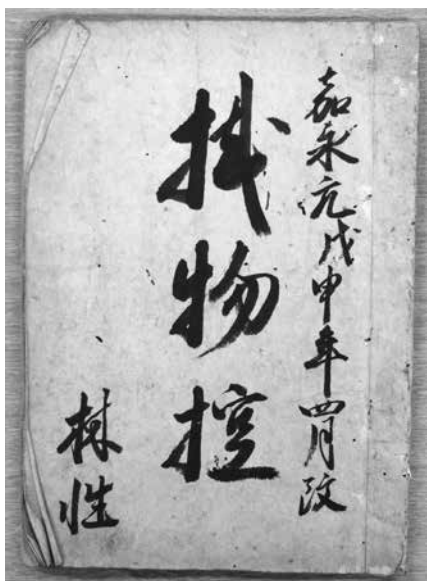 嘉永元戊申年四月改
掛物控
林性